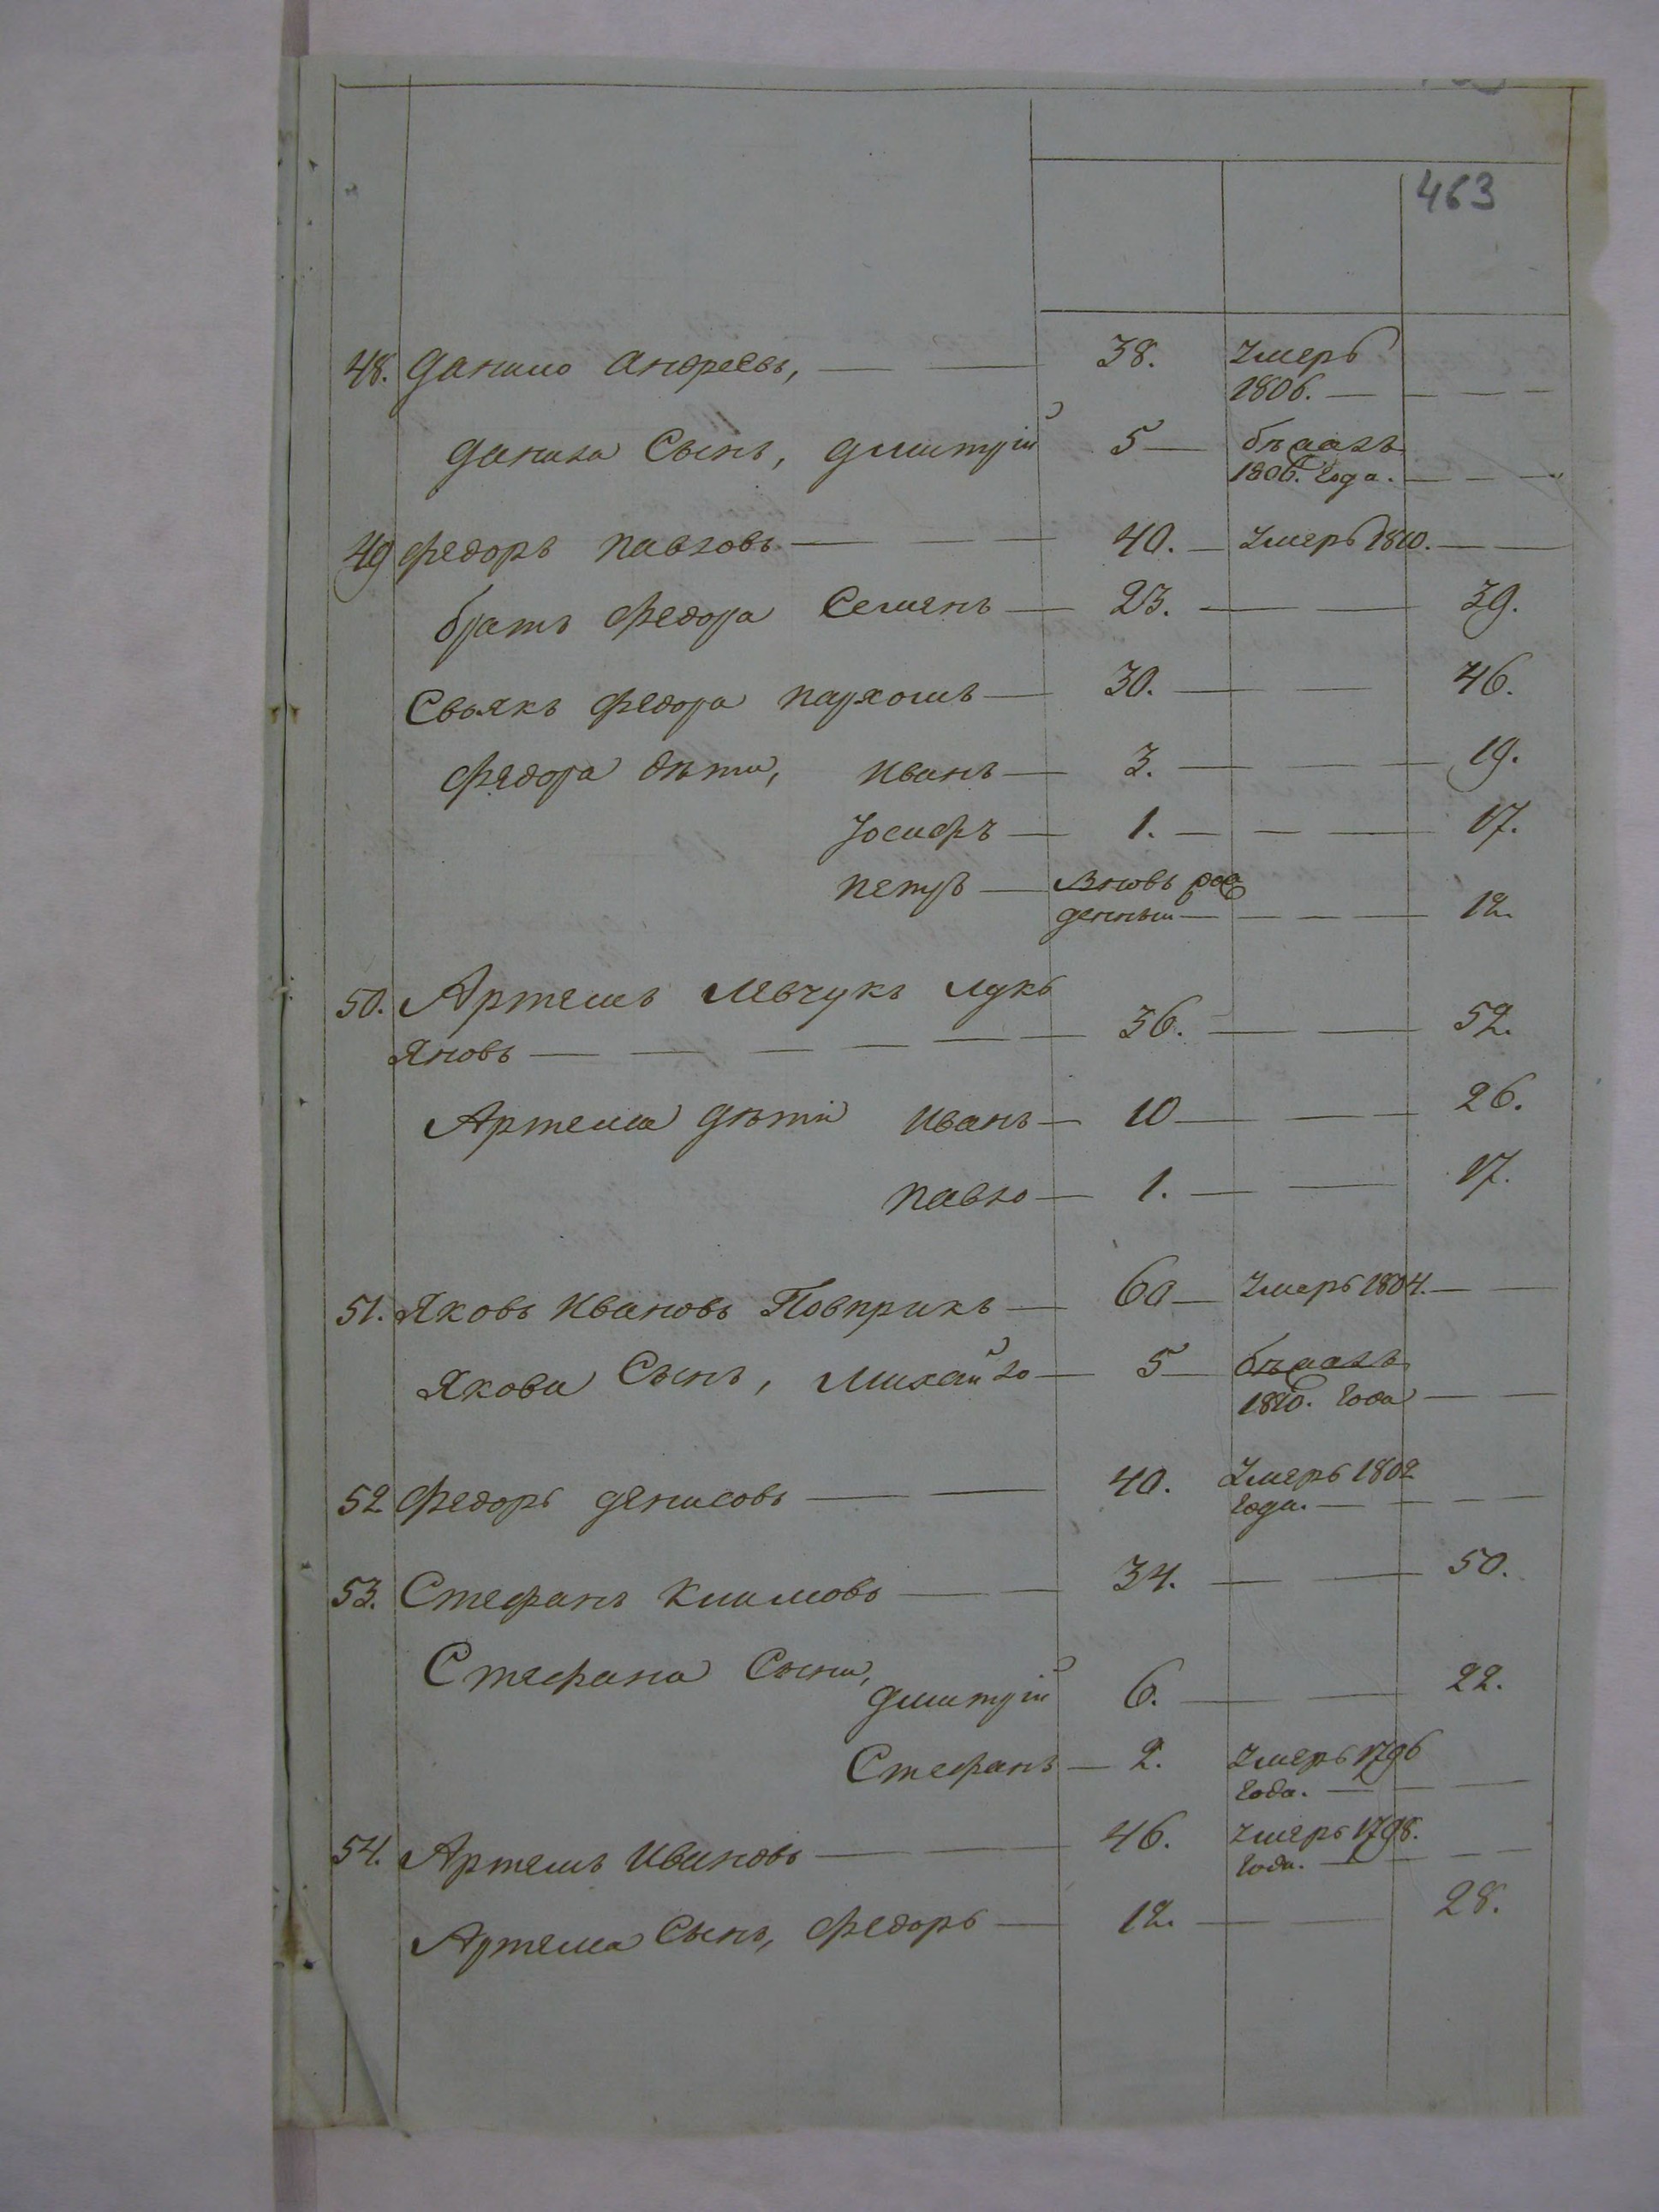 463
48. Данило Андреевъ, — — 38. Умеръ
1806. — — — —
Данила Сынъ, Дмитрій 5 — бѣжалъ
1806. Года. — — —
49 Федоръ Павловъ — — — 40. — Умеръ 1810. — —
братъ Федора Семенъ — 23. — — 39.
Своякъ Федора Пархомъ — 30. — — 46.
Федора дѣти, Иванъ — 3. — — — 19.
Іосифъ — 1. — — — 17.
Петръ — Вновь рож
денный — — — — 12.
50. Артемъ Левчукъ Лукь
яновъ — — — — — — 36. — — 52.
Артема Дѣти Иванъ — 10 — — — 26.
Павло — 1. — — 17.
51. Яковъ Ивановъ Повприкъ — 60 — Умеръ 1804. — —
Якова Сынъ, Михайло — 5 — бѣжалъ
1810. Года — —
52 Федоръ Денисовъ — — 40. Умеръ 1802
Года. — — — —
53. Стефанъ Климовъ — — 34. — — 50.
Стефана Сыны,
Дмитрій 6. — — 22.
Стефанъ — 2. Умеръ 1796
Года. — — —
54. Артемъ Ивановъ — — — 46. Умеръ 1798.
Года. — — — —
Артема Сынъ, Федоръ — 12. — — 28.